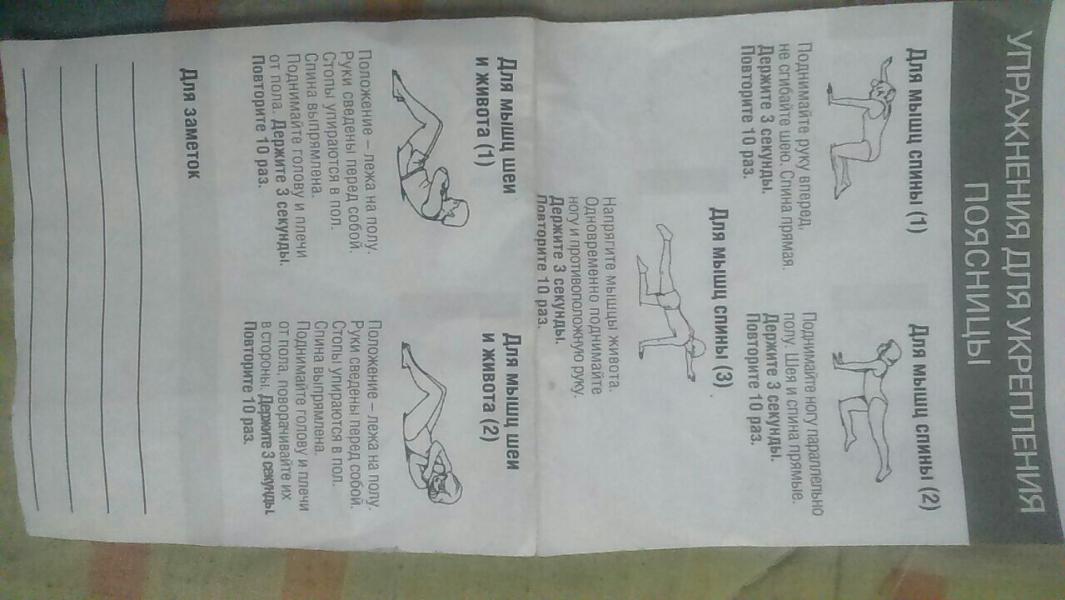 УПРАЖНЕНИЯ ДЛЯ УКРЕПЛЕНИЯ
ПОЯСНИЦЫ
Для мышц спины (1)
Поднимайте руку вперед,
не сгибайте шею. Спина прямая.
Держите 3 секунды.
Повторите 10 раз.
Для мышц спины (2)
Поднимайте ногу параллельно
полу. Шея и спина прямые.
Держите 3 секунды.
Повторите 10 раз.
Для мышц спины (3)
Напрягите мышцы живота.
Одновременно поднимайте
ногу и противоположную руку.
Держите 3 секунды.
Повторите 10 раз.
Для мышц шеи
и живота (1)
Положение – лежа на полу.
Руки сведены перед собой.
Стопы упираются в пол.
Спина выпрямлена.
Поднимайте голову и плечи
от пола. Держите 3 секунды.
Повторите 10 раз.
Для мышц шеи
и живота (2)
Положение – лежа на полу.
Руки сведены перед собой.
Стопы упираются в пол.
Спина выпрямлена.
Поднимайте голову и плечи
от пола, поворачивайте их
в стороны. Держите 3 секунды.
Повторите 10 раз.
Для заметок